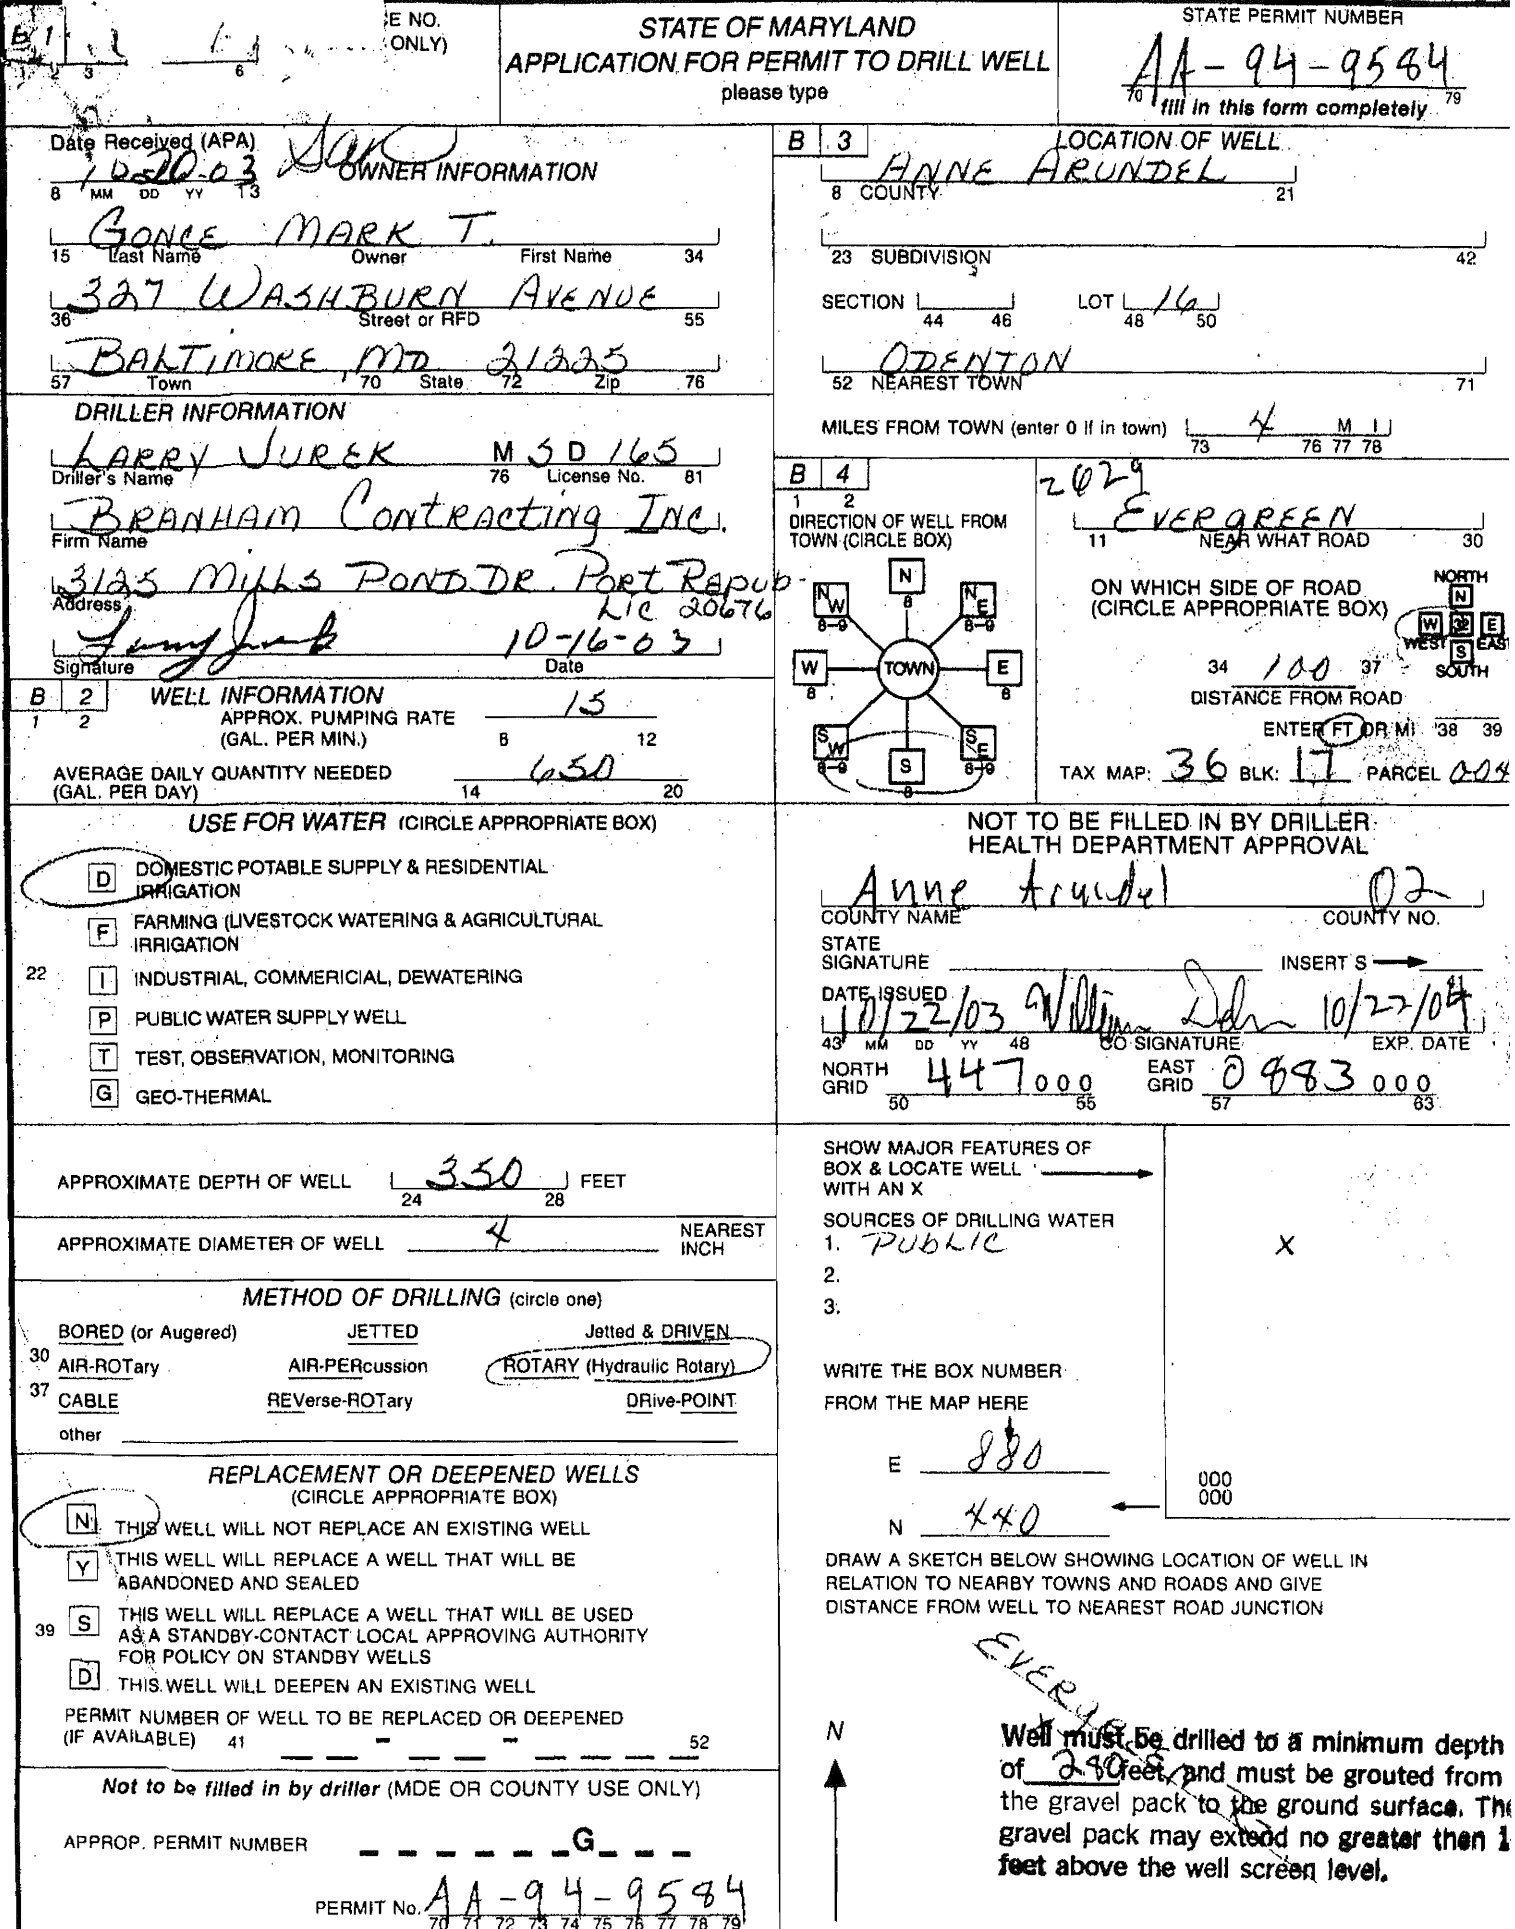 B 1
E NO.
ONLY)
2 3 6
STATE OF MARYLAND
APPLICATION FOR PERMIT TO DRILL WELL
please type
STATE PERMIT NUMBER
AA-94-9584
70 fill in this form completely 79
Date Received (APA)
OWNER INFORMATION
8 MM DD YY 13
GONCE MARK T.
15 Last Name Owner First Name 34
327 WASHBURN AVENUE
36 Street or RFD 55
BALTIMORE, MD 21225
57 Town 70 State 72 Zip 76
DRILLER INFORMATION
LARRY JUREK M S D 165
Driller's Name 76 License No. 81
BRANHAM Contracting INC.
Firm Name
3125 Mills POND DR. Port Repub-
Address Lic 20676
10-16-03
Signature Date
B 2 WELL INFORMATION
1 2
APPROX. PUMPING RATE 15
(GAL. PER MIN.) 8 12
AVERAGE DAILY QUANTITY NEEDED 650
(GAL. PER DAY) 14 20
USE FOR WATER (CIRCLE APPROPRIATE BOX)
D DOMESTIC POTABLE SUPPLY & RESIDENTIAL
IRRIGATION
F FARMING (LIVESTOCK WATERING & AGRICULTURAL
IRRIGATION
22 I INDUSTRIAL, COMMERICIAL, DEWATERING
P PUBLIC WATER SUPPLY WELL
T TEST, OBSERVATION, MONITORING
G GEO-THERMAL
APPROXIMATE DEPTH OF WELL 350 FEET
24 28
APPROXIMATE DIAMETER OF WELL 4 NEAREST
INCH
METHOD OF DRILLING (circle one)
BORED (or Augered) JETTED Jetted & DRIVEN
30 AIR-ROTary AIR-PERcussion ROTARY (Hydraulic Rotary)
37 CABLE REVerse-ROTary DRive-POINT
other
REPLACEMENT OR DEEPENED WELLS
(CIRCLE APPROPRIATE BOX)
N THIS WELL WILL NOT REPLACE AN EXISTING WELL
Y THIS WELL WILL REPLACE A WELL THAT WILL BE
ABANDONED AND SEALED
39 S THIS WELL WILL REPLACE A WELL THAT WILL BE USED
AS A STANDBY-CONTACT LOCAL APPROVING AUTHORITY
FOR POLICY ON STANDBY WELLS
D THIS WELL WILL DEEPEN AN EXISTING WELL
PERMIT NUMBER OF WELL TO BE REPLACED OR DEEPENED
(IF AVAILABLE) 41 - - 52
Not to be filled in by driller (MDE OR COUNTY USE ONLY)
APPROP. PERMIT NUMBER G
PERMIT No. AA-94-9584
70 71 72 73 74 75 76 77 78 79
B 3 LOCATION OF WELL
ANNE ARUNDEL
8 COUNTY 21
23 SUBDIVISION 42
SECTION LOT 16
44 46 48 50
ODENTON
52 NEAREST TOWN 71
MILES FROM TOWN (enter 0 if in town) 4 M I
73 76 77 78
B 4
1 2
DIRECTION OF WELL FROM
TOWN (CIRCLE BOX)
N
8
NW
8-9
NE
8-9
W
8
TOWN
E
8
SW
8-9
SE
8-9
S
8
2629
EVERGREEN
11 NEAR WHAT ROAD 30
ON WHICH SIDE OF ROAD
(CIRCLE APPROPRIATE BOX)
NORTH
N
W E
WEST EAS
S
SOUTH
34 100 37
DISTANCE FROM ROAD
ENTER FT OR MI 38 39
TAX MAP: 36 BLK: 17 PARCEL 004
NOT TO BE FILLED IN BY DRILLER
HEALTH DEPARTMENT APPROVAL
Anne Arundel 02
COUNTY NAME COUNTY NO.
STATE
SIGNATURE INSERT S
41
DATE ISSUED
10/22/03 10/22/04
43 MM DD YY 48 CO SIGNATURE EXP. DATE
NORTH
GRID 447000
50 55
EAST
GRID 0883000
57 63
SHOW MAJOR FEATURES OF
BOX & LOCATE WELL
WITH AN X
SOURCES OF DRILLING WATER
1. PUBLIC
X
2.
3.
WRITE THE BOX NUMBER
FROM THE MAP HERE
E 880
N 440
000
000
DRAW A SKETCH BELOW SHOWING LOCATION OF WELL IN
RELATION TO NEARBY TOWNS AND ROADS AND GIVE
DISTANCE FROM WELL TO NEAREST ROAD JUNCTION
N
Well must be drilled to a minimum depth
of 280 feet, and must be grouted from
the gravel pack to the ground surface. The
gravel pack may extend no greater then 1
feet above the well screen level.